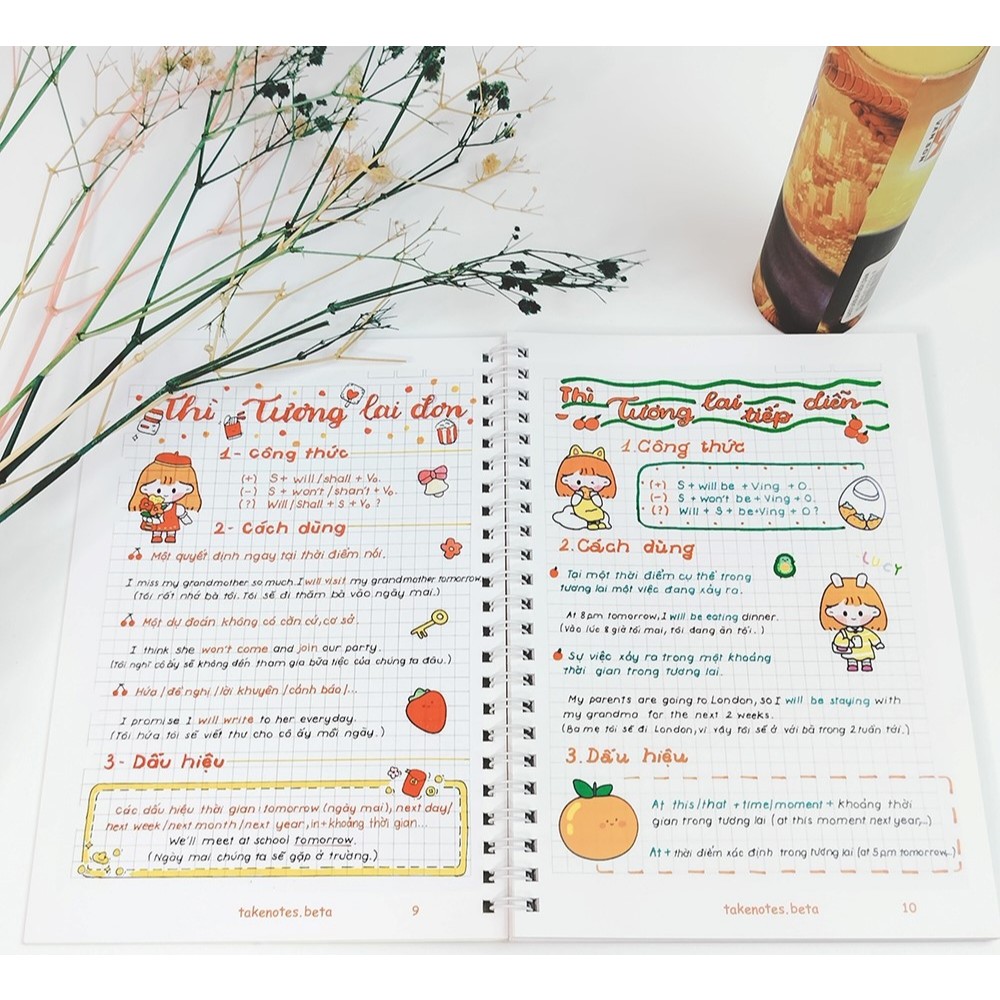 Thì Tương lai đơn
1- Công thức
(+) S + will /shall + V₀.
(-) S + won't /shan't + V₀.
(?) Will/Shall + S + V₀ ?
2- Cách dùng
Một quyết định ngay tại thời điểm nói.
I miss my grandmother so much. I will visit my grandmother tomorrow
(Tôi rất nhớ bà tôi. Tôi sẽ đi thăm bà vào ngày mai.)
Một dự đoán không có căn cứ, cơ sở.
I think she won't come and join our party.
(Tôi nghĩ cô ấy sẽ không đến tham gia bữa tiệc của chúng ta đâu.)
Hứa /đề nghị /lời khuyên /cảnh báo/...
I promise I will write to her everyday.
(Tôi hứa tôi sẽ viết thư cho cô ấy mỗi ngày.)
3- Dấu hiệu
Các dấu hiệu thời gian: tomorrow (ngày mai), next day/
next week /next month /next year, in+khoảng thời gian...
We'll meet at school tomorrow.
(Ngày mai chúng ta sẽ gặp ở trường.)
takenotes.beta 9
Thì Tương lai tiếp diễn
1. Công thức
(+) S + will be + Ving + O.
(-) S + won't be + Ving + O.
(?) Will + S + be+Ving + O ?
2. Cách dùng
LUCY
Tại một thời điểm cụ thể trong
tương lai một việc đang xảy ra.
At 8pm tomorrow, I will be eating dinner.
(Vào lúc 8 giờ tối mai, tôi đang ăn tối.)
Sự việc xảy ra trong một khoảng
thời gian trong tương lai.
My parents are going to London, so I will be staying with
my grandma for the next 2 weeks.
(Ba mẹ tôi sẽ đi London, vì vậy tôi sẽ ở với bà trong 2 tuần tới.)
3. Dấu hiệu
At this/that + time/moment + khoảng thời
gian trong tương lai (at this moment next year,...)
At + thời điểm xác định trong tương lai (at 5pm tomorrow...)
takenotes.beta 10